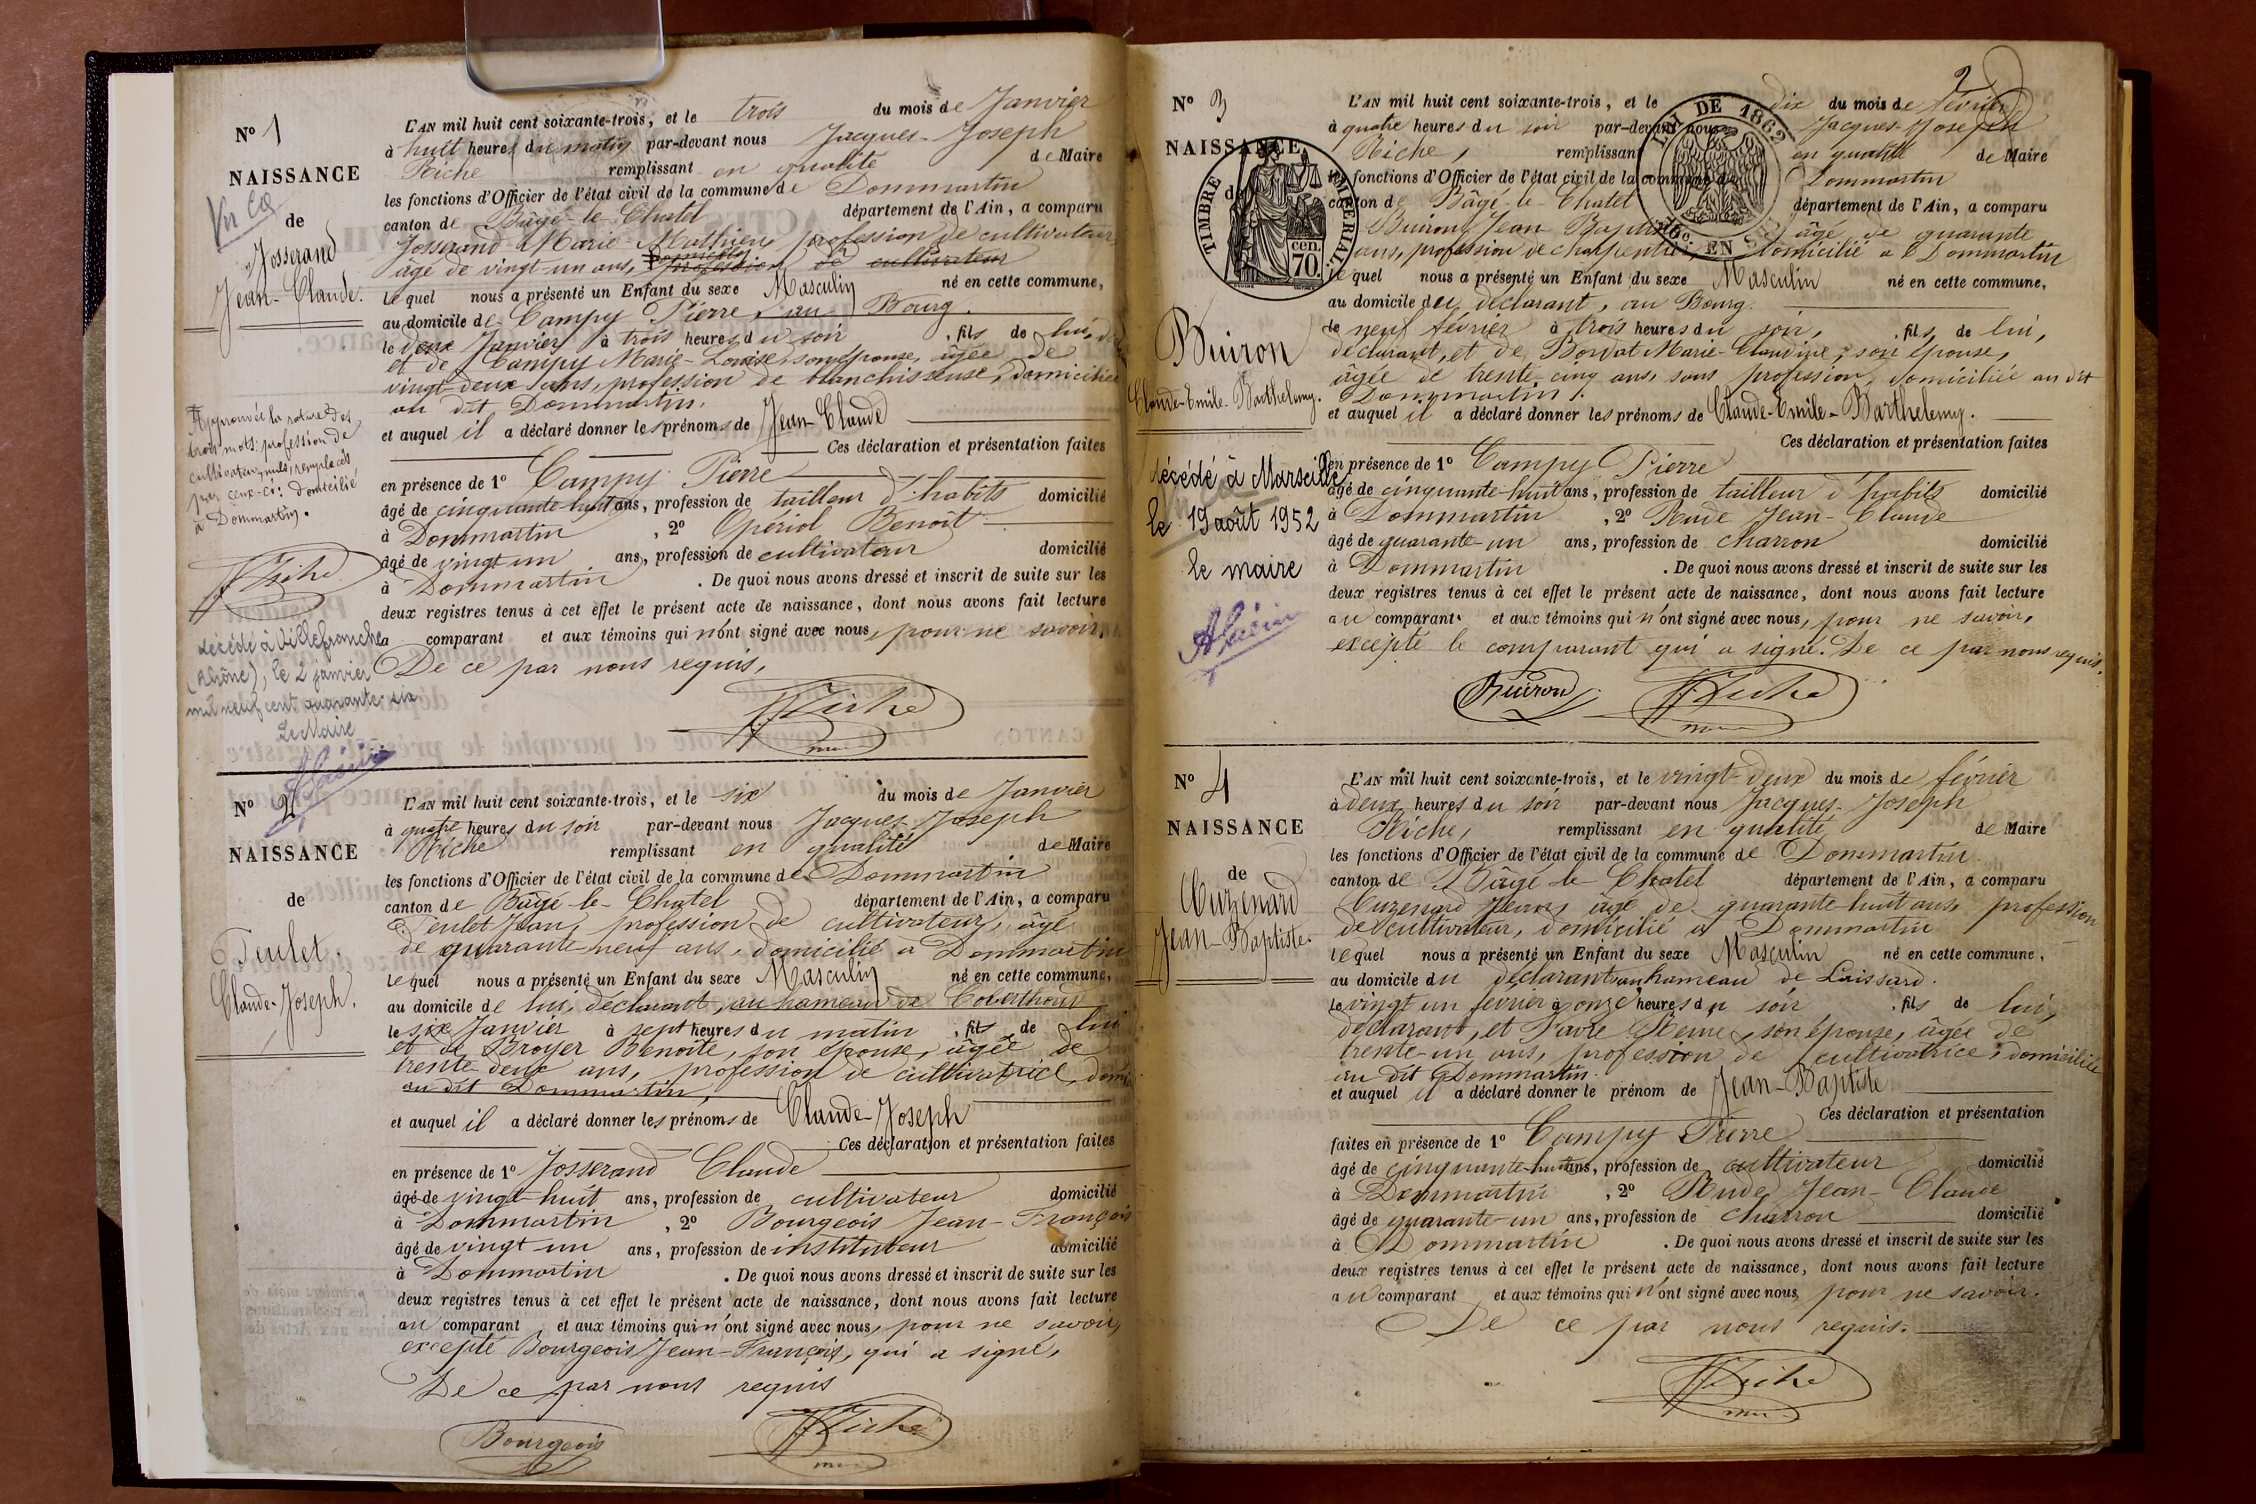 N° 1
NAISSANCE
Vu Ca
de
Josserand
Jean-Claude.
L'AN mil huit cent soixante-trois, et le trois du mois de Janvier
à huit heures du matin par-devant nous Jacques-Joseph
Riche remplissant en qualité de Maire
les fonctions d'Officier de l'état civil de la commune de Dommartin
canton de Bâgé-le-Chatel département de l'Ain, a comparu
Josserand Marie-Mathieu, profession de cultivateur
âgé de vingt un ans, profession de cultivateur
lequel nous a présenté un Enfant du sexe Masculin né en cette commune,
au domicile de Campy Pierre, au Bourg.
le deux Janvier à trois heures du soir, fils de lui,
et de Campy Marie-Louise, son épouse, âgée de
vingt-deux ans, profession de blanchisseuse, domiciliée
au dit Dommartin.
et auquel il a déclaré donner les prénoms de Jean-Claude
Ces déclaration et présentation faites
en présence de 1° Campy Pierre
âgé de cinquante-huit ans, profession de tailleur d'habits domicilié
à Dommartin, 2° Benoît
âgé de vingt un ans, profession de cultivateur domicilié
à Dommartin. De quoi nous avons dressé et inscrit de suite sur les
deux registres tenus à cet effet le présent acte de naissance, dont nous avons fait lecture
comparant et aux témoins qui n'ont signé avec nous, pour ne savoir,
De ce par nous requis,
Riche
Approuvé la rature des
trois mots: profession de
cultivateur, nuls, remplacés
par ceux-ci: domicilié
à Dommartin.
Riche
décédé à Villefranche
(Rhône), le 2 janvier
mil neuf cent quarante-six
Le Maire
N° 2
NAISSANCE
de
Teulet.
Claude-Joseph.
L'AN mil huit cent soixante-trois, et le six du mois de Janvier
à quatre heures du soir par-devant nous Jacques-Joseph
Riche remplissant en qualité de Maire
les fonctions d'Officier de l'état civil de la commune de Dommartin
canton de Bâgé-le-Chatel département de l'Ain, a comparu
Teulet Jean, profession de cultivateur, âgé
de quarante-neuf ans, domicilié à Dommartin
lequel nous a présenté un Enfant du sexe Masculin né en cette commune,
au domicile de lui, déclarant, au hameau de
le six Janvier à sept heures du matin, fils de lui
et de Broyer Benoîte, son épouse, âgée de
trente deux ans, profession de cultivatrice,
au dit Dommartin,
et auquel il a déclaré donner les prénoms de Claude-Joseph
Ces déclaration et présentation faites
en présence de 1° Josserand Claude
âgé de vingt-huit ans, profession de cultivateur domicilié
à Dommartin, 2° Bourgeois Jean-François
âgé de vingt un ans, profession de instituteur domicilié
à Dommartin. De quoi nous avons dressé et inscrit de suite sur les
deux registres tenus à cet effet le présent acte de naissance, dont nous avons fait lecture
au comparant et aux témoins qui n'ont signé avec nous, pour ne savoir,
excepté Bourgeois Jean-François, qui a signé,
De ce par nous requis
Bourgeois Riche
2
N° 3
NAISSANCE
de
TIMBRE IMPÉRIAL
70 cen.
Buiron
Claude-Emile-Barthelemy.
décédé à Marseille
le 19 août 1952
le maire
DE 1862
EN
L'AN mil huit cent soixante-trois, et le dix du mois de février
à quatre heures du soir par-devant nous Jacques-Joseph
Riche, remplissant en qualité de Maire
les fonctions d'Officier de l'état civil de la commune de Dommartin
canton de Bâgé-le-Chatel département de l'Ain, a comparu
Buiron Jean Baptiste âgé de quarante
ans, profession de charpentier, domicilié à Dommartin
lequel nous a présenté un Enfant du sexe Masculin né en cette commune,
au domicile du déclarant, au Bourg.
le neuf février à trois heures du soir, fils de lui,
déclarant, et de Bordat Marie-Claudine, son épouse,
âgée de trente-cinq ans, sans profession, domiciliée au dit
Dommartin.
et auquel il a déclaré donner les prénoms de Claude-Emile-Barthelemy.
Ces déclaration et présentation faites
en présence de 1° Campy Pierre
âgé de cinquante-huit ans, profession de tailleur d'habits domicilié
à Dommartin, 2° Rude Jean-Claude
âgé de quarante-un ans, profession de charron domicilié
à Dommartin. De quoi nous avons dressé et inscrit de suite sur les
deux registres tenus à cet effet le présent acte de naissance, dont nous avons fait lecture
au comparant et aux témoins qui n'ont signé avec nous, pour ne savoir,
excepté le comparant qui a signé. De ce par nous requis.
Buiron Riche
N° 4
NAISSANCE
de
Cuzenard
Jean-Baptiste.
L'AN mil huit cent soixante-trois, et le vingt-deux du mois de février
à deux heures du soir par-devant nous Jacques-Joseph
Riche, remplissant en qualité de Maire
les fonctions d'Officier de l'état civil de la commune de Dommartin.
canton de Bâgé-le-Chatel département de l'Ain, a comparu
Cuzenard Jean, âgé de quarante-huit ans, profession
de cultivateur, domicilié à Dommartin
lequel nous a présenté un Enfant du sexe Masculin né en cette commune,
au domicile du déclarant au hameau de Loissard.
le vingt un février à onze heures du soir, fils de lui,
déclarant, et Favre son épouse, âgée de
trente-un ans, profession de cultivatrice, domiciliée
au dit Dommartin.
et auquel il a déclaré donner le prénom de Jean-Baptiste
Ces déclaration et présentation
faites en présence de 1° Campy Pierre
âgé de cinquante-huit ans, profession de cultivateur domicilié
à Dommartin, 2° Rude Jean-Claude
âgé de quarante-un ans, profession de charron domicilié
à Dommartin. De quoi nous avons dressé et inscrit de suite sur les
deux registres tenus à cet effet le présent acte de naissance, dont nous avons fait lecture
au comparant et aux témoins qui n'ont signé avec nous, pour ne savoir.
De ce par nous requis.
Riche